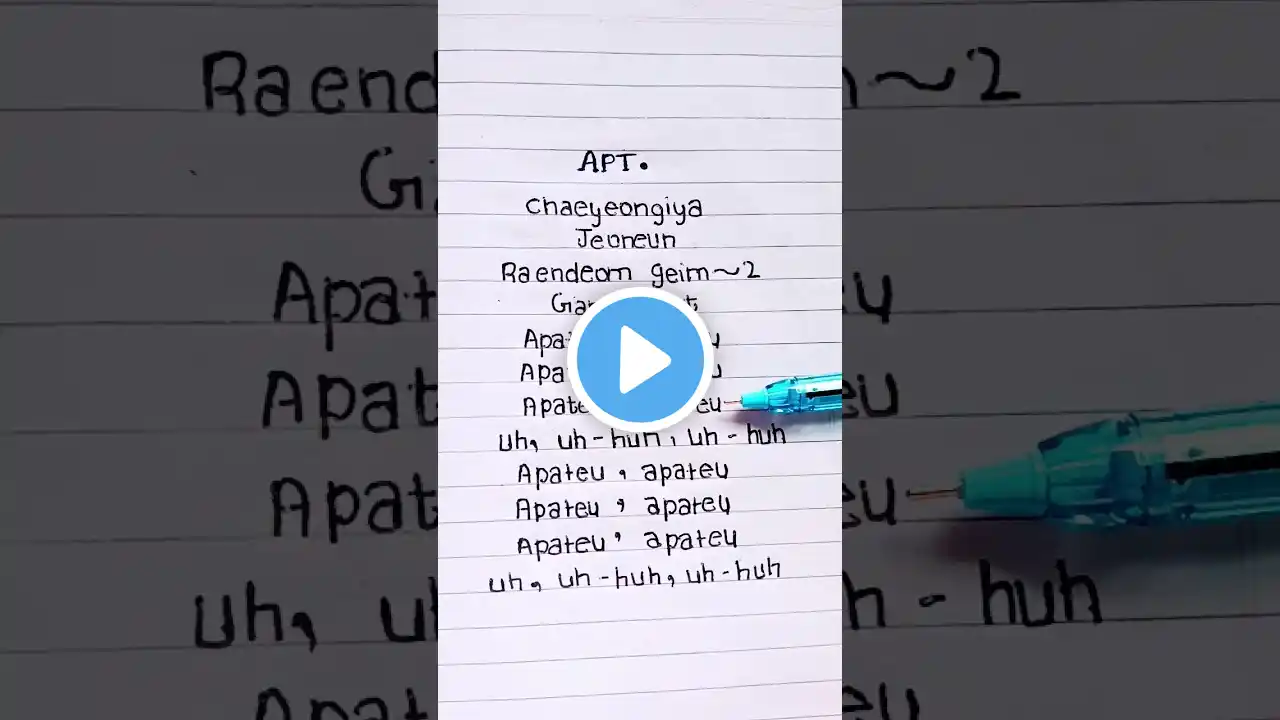 APT.
chaeyeongiya
Jeoneun
Raendeom geim~2
Apateu
uh, uh-huh, uh-huh
Apateu, apateu
Apateu, apateu
Apateu, apateu
uh, uh-huh, uh-huh